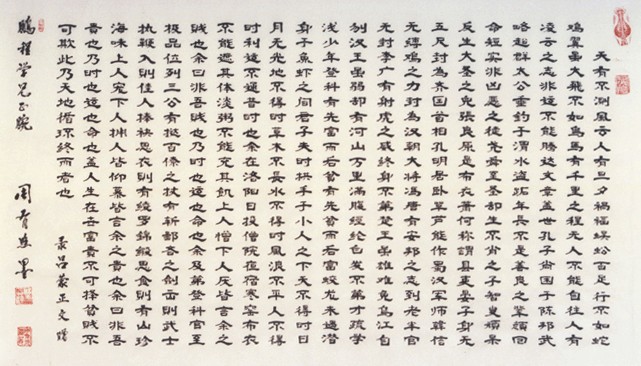 天有不测风云人有旦夕祸福蜈蚣百足行不如蛇
鸡翼虽大飞不如鸟马有千里之程无人不能自往人有
凌云之志非运不能腾达文章盖世孔子尚困于陈邦武
略超群太公垂钓于渭水盗跖年长不是善良之辈颜回
命短实非凶恶之徒尧舜至圣却生不肖之子瞽叟顽呆
反生大圣之儿张良原是布衣萧何称谓县吏晏子身无
五尺封为齐国首相孔明居卧草庐能作蜀汉军师韩信
无缚鸡之力封为汉朝大将冯唐有安邦之志到老半官
无封李广有射虎之威终身不第楚王虽雄难免乌江自
刎汉王虽弱却有河山万里满腹经纶白发不第才疏学
浅少年登科有先富而后贫有先贫而后富蛟龙未遇潜
身于鱼虾之间君子失时拱手于小人之下天不得时日
月无光地不得时草木不长水不得时风浪不平人不得
时利运不通昔时也余在洛阳日投僧院夜宿寒窑布衣
不能遮其体淡粥不能充其饥上人憎下人厌皆言余之
贱也余曰非吾贱也乃时也运也命也余及第登科官至
极品位列三公有挞百僚之杖有斩鄙吝之剑出则武士
执鞭入则佳人捧袂思衣则有绫罗锦缎思食则有山珍
海味上人宠下人拥人皆仰慕皆言余之贵也余曰非吾
贵也乃时也运也命也盖人生在世富贵不可捧贫贱不
可欺此乃天地循环终而者也
录吕蒙正文赠
鹏程学兄正腕